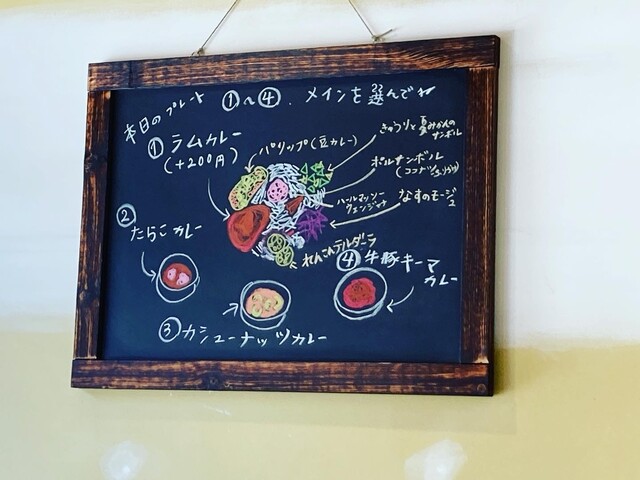 本日のプレート ①〜④、メインを選んで
①ラムカレー
(+200円)
パリップ(豆カレー)
きゅうりと夏みかんの
サンボル
ポルサンボル
ハールマッソー
なすのモージュ
れんこんテルダーラ
②
たらこカレー
③カシューナッツカレー
④牛豚キーマ
カレー